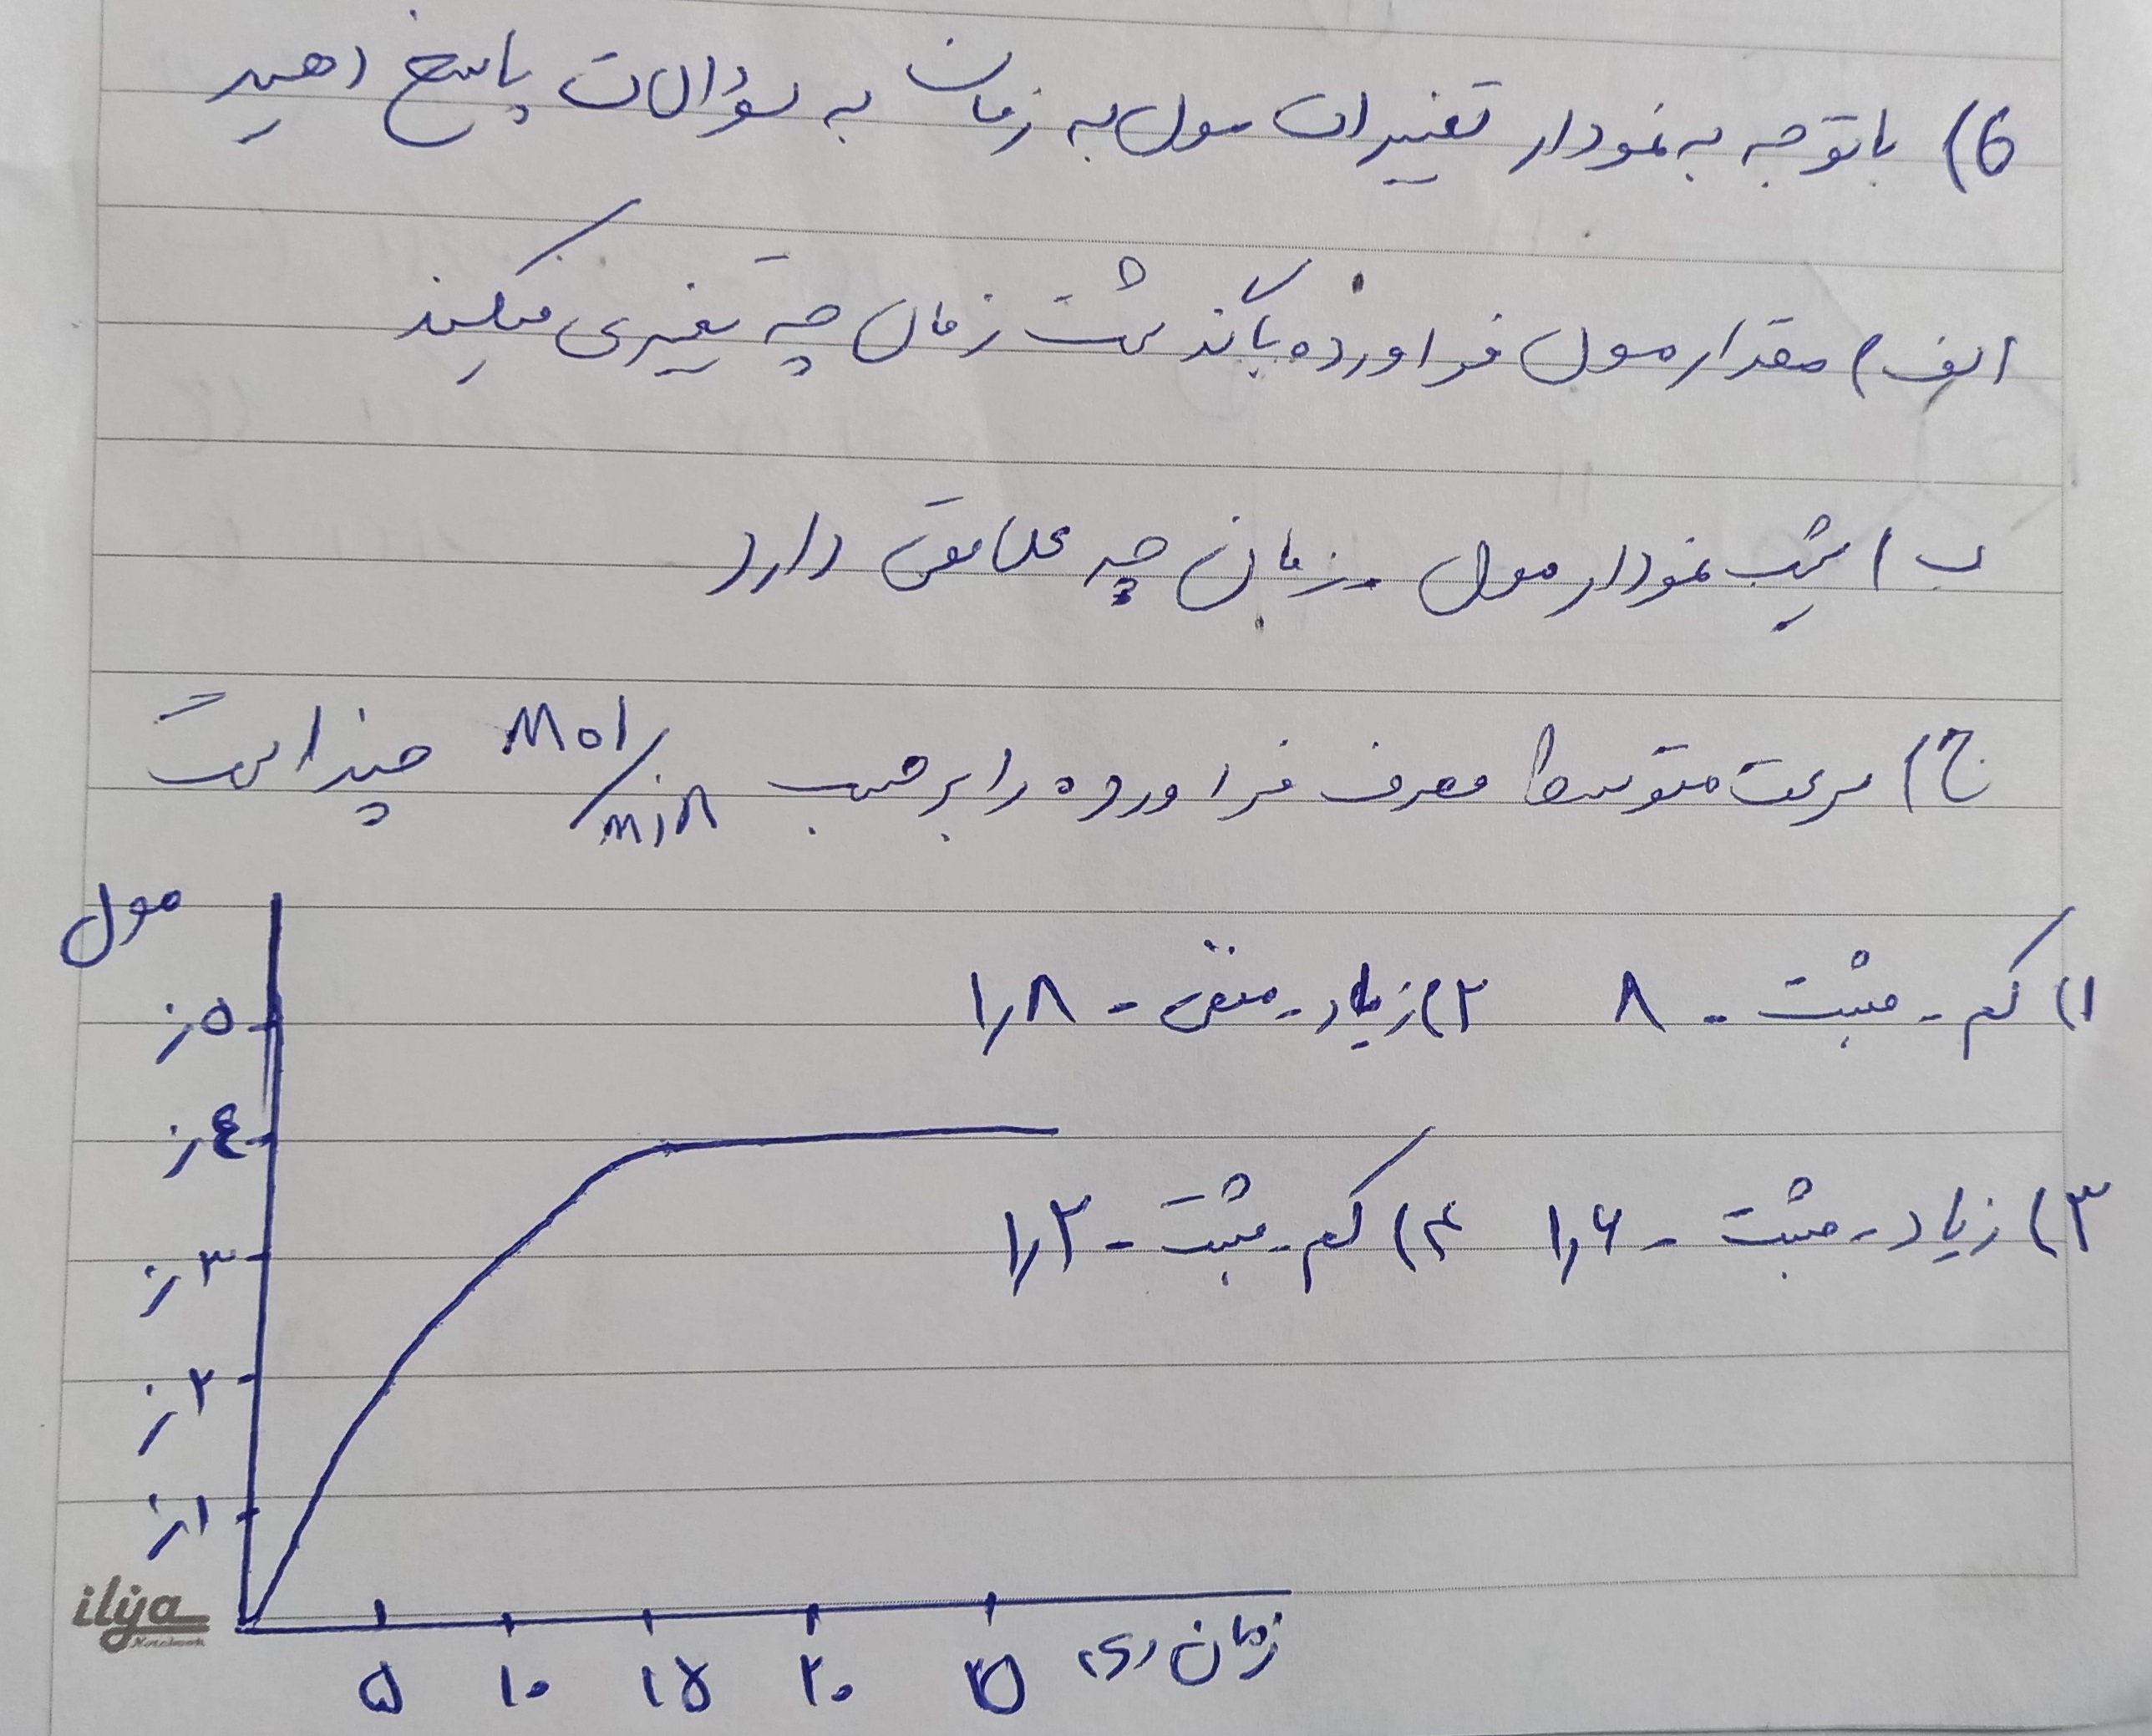 6) باتوجه به نمودار تغییرات مول به زمان به سؤالات پاسخ دهید
الف) مقدار مول فراورده باگذشت زمان چه تغییری میکند
ب) شیب نمودار مول - زمان چه علامتی دارد
ج) سرعت متوسط مصرف فراورده را برحسب Mol/min چند است
مول
۱) کم - مثبت - ۸ ۲) زیاد - منفی - ۱٫۸
۳) زیاد - مثبت - ۱٫۶ ۴) کم - مثبت - ۱٫۲
۰٫۵
۰٫۴
۰٫۳
۰٫۲
۰٫۱
ilya
Notebook
۵ ۱۰ ۱۵ ۲۰ ۲۵ زمان (s)